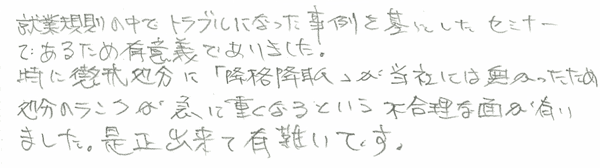 就業規則の中でトラブルになった事例を基にしたセミナー
であるため有意義でありました。
特に懲戒処分に「降格降職」が当社には無かったため
処分のランクが急に重くなるという不合理な面が有り
ました。是正出来て有難いです。